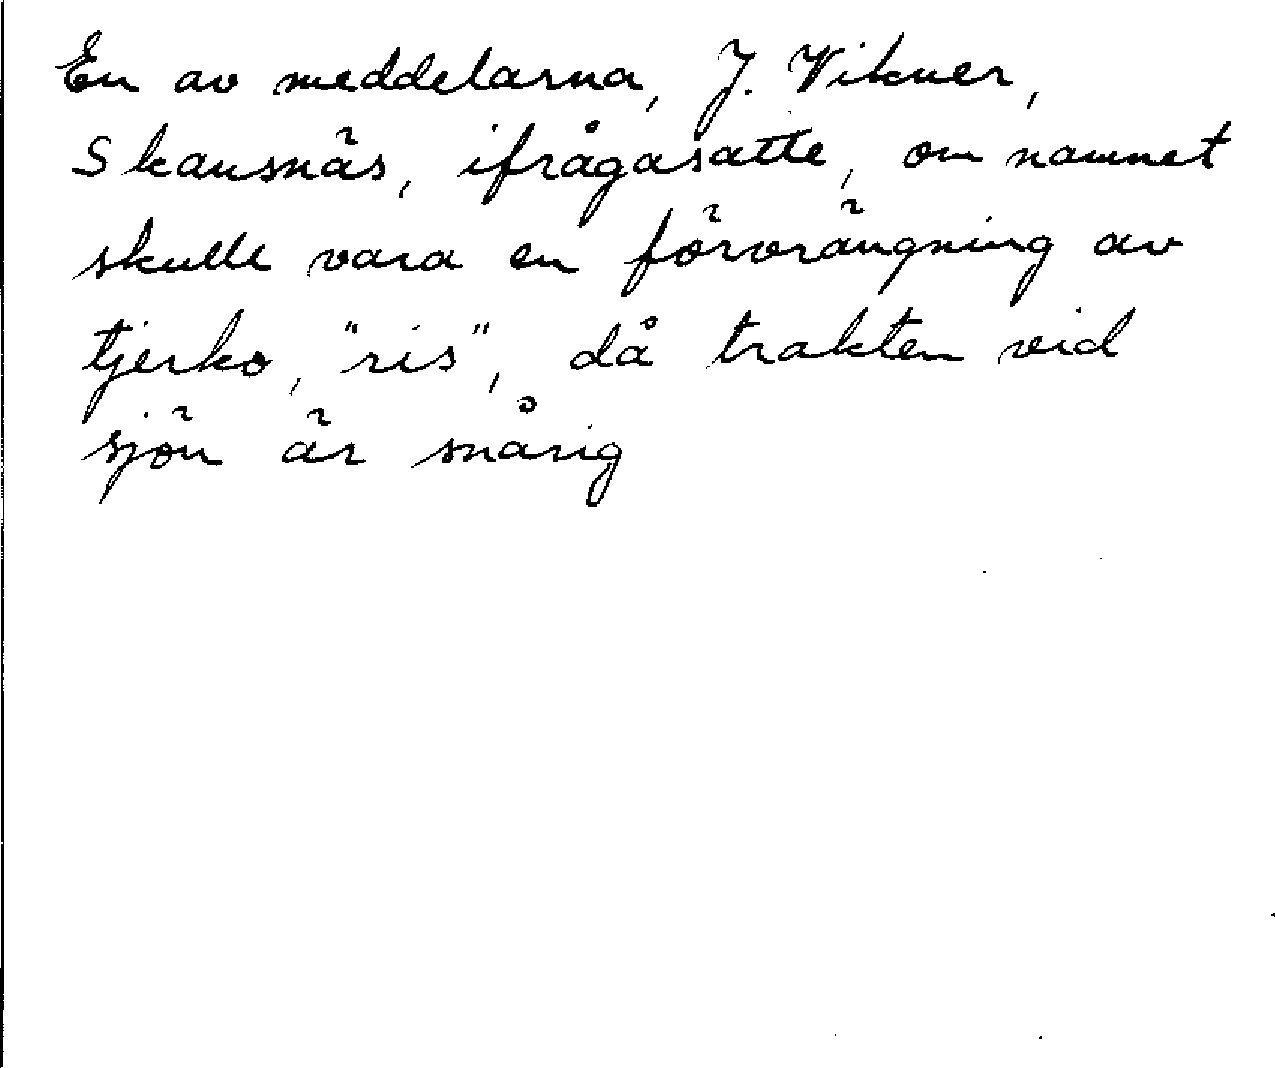 En av meddelarna, J. Vikner,
Skansnäs, ifrågasatte, om namnet
skulle vara en förvrängning av
tjerko, "ris", då trakten vid
sjön är snårig